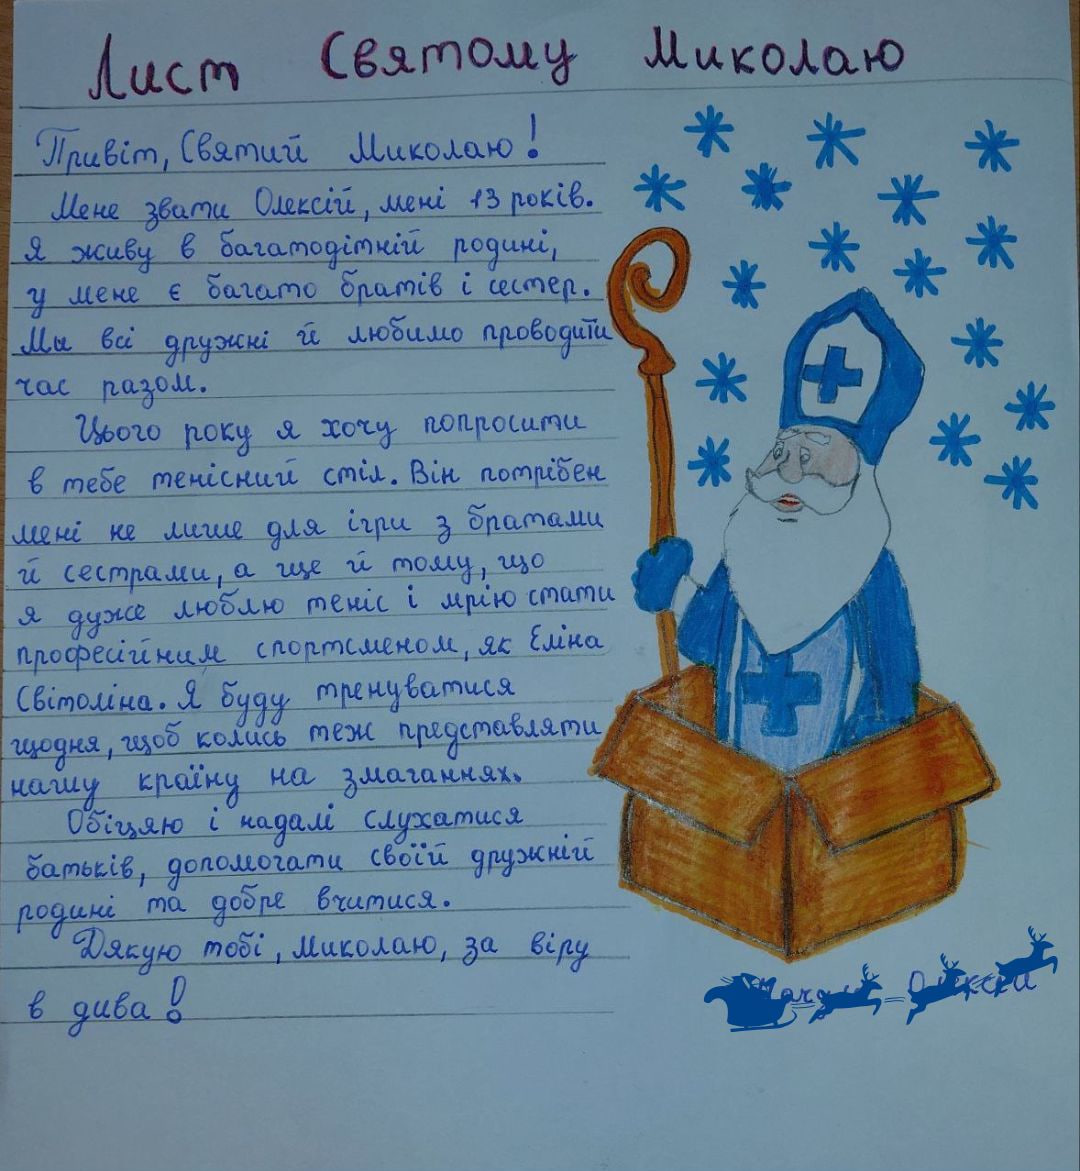 Лист Святому Миколаю
Привіт, Святий Миколаю!
Мене звати Олексій, мені 13 років.
Я живу в багатодітній родині,
у мене є багато братів і сестер.
Ми всі дружні й любимо проводити
час разом.
Цього року я хочу попросити
в тебе тенісний стіл. Він потрібен
мені не лише для ігри з братами
й сестрами, а ще й тому, що
я дуже люблю теніс і мрію стати
професійним спортсменом, як Еліна
Світоліна. Я буду тренуватися
щодня, щоб колись теж представляти
нашу країну на змаганнях.
Обіцяю і надалі слухатися
батьків, допомогати своїй дружній
родині та добре вчитися.
Дякую тобі, Миколаю, за віру
в дива!
Олексій